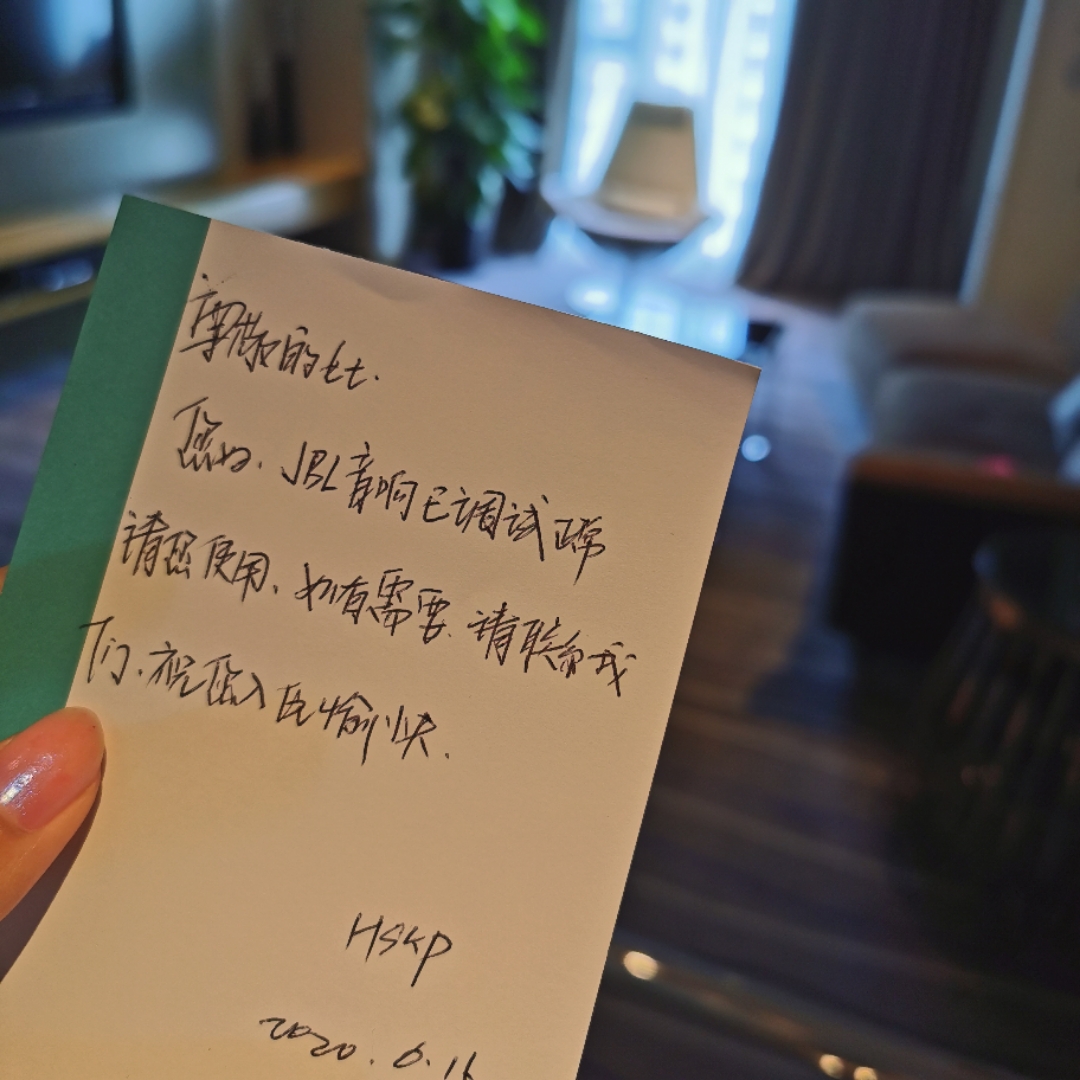 尊敬的
您好、JBL音响已调试正常
请您使用、如有需要、请联系我
们、祝您入住愉快.
HSKP
2020.6.16